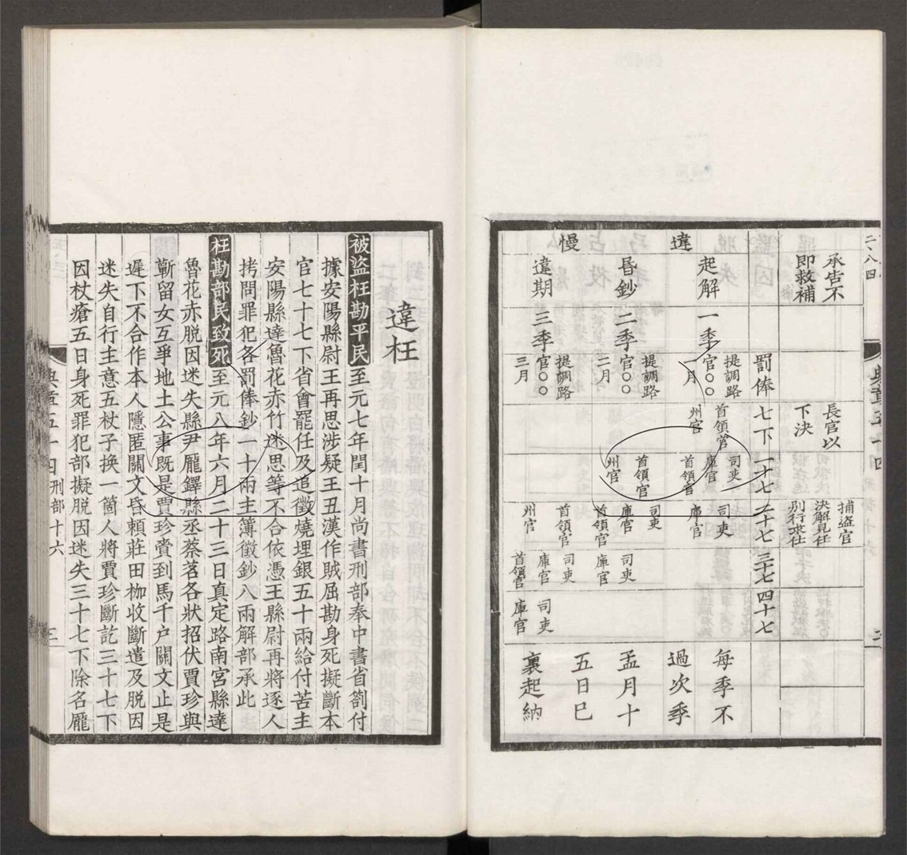 二八四
承告不
即救補
長官以
下決
捕盜官
決解見任
別行求仕
罰俸
七下
一十七
二十七
三十七
四十七
違
慢
起解
一季
提調路
官〇〇
一月
首領官
州官
司吏
庫官
首領官
司吏
庫官
每季不
過次季
昏鈔
二季
提調路
官〇〇
二月
首領官
州官
司吏
庫官
首領官
司吏
庫官
孟月十
五日巳
違期
三季
提調路
官〇〇
三月
首領官
州官
司吏
庫官
首領官
司吏
庫官
裏起納
違枉
被盜枉勘平民至元七年閏十月尚書刑部奉中書省劄付
據安陽縣尉王再思涉疑王丑漢作賊屈勘身死擬斷本
官七十七下省會罷任及追徵燒埋銀五十兩給付苦主
安陽縣達魯花亦竹迷思等不合依憑王縣尉再將逐人
拷問罪犯各罰俸鈔一十兩主簿徵鈔八兩解部承此
枉勘部民致死至元八年六月二十三日真定路南宮縣達
魯花亦脫因迷失縣尹龎鐸縣丞蔡茖各狀招伏賈珍與
靳留女互爭地土公事既是賈珍賫到馬千戶關文止是
遲下不合作本人隱匿關文昏賴莊田枷收斷遣及脫因
迷失自行主意五杖子換一箇人將賈珍斷訖三十七下
因杖瘡五日身死罪犯部擬脫因迷失三十七下除名龎
典章五十四 刑部十六 三